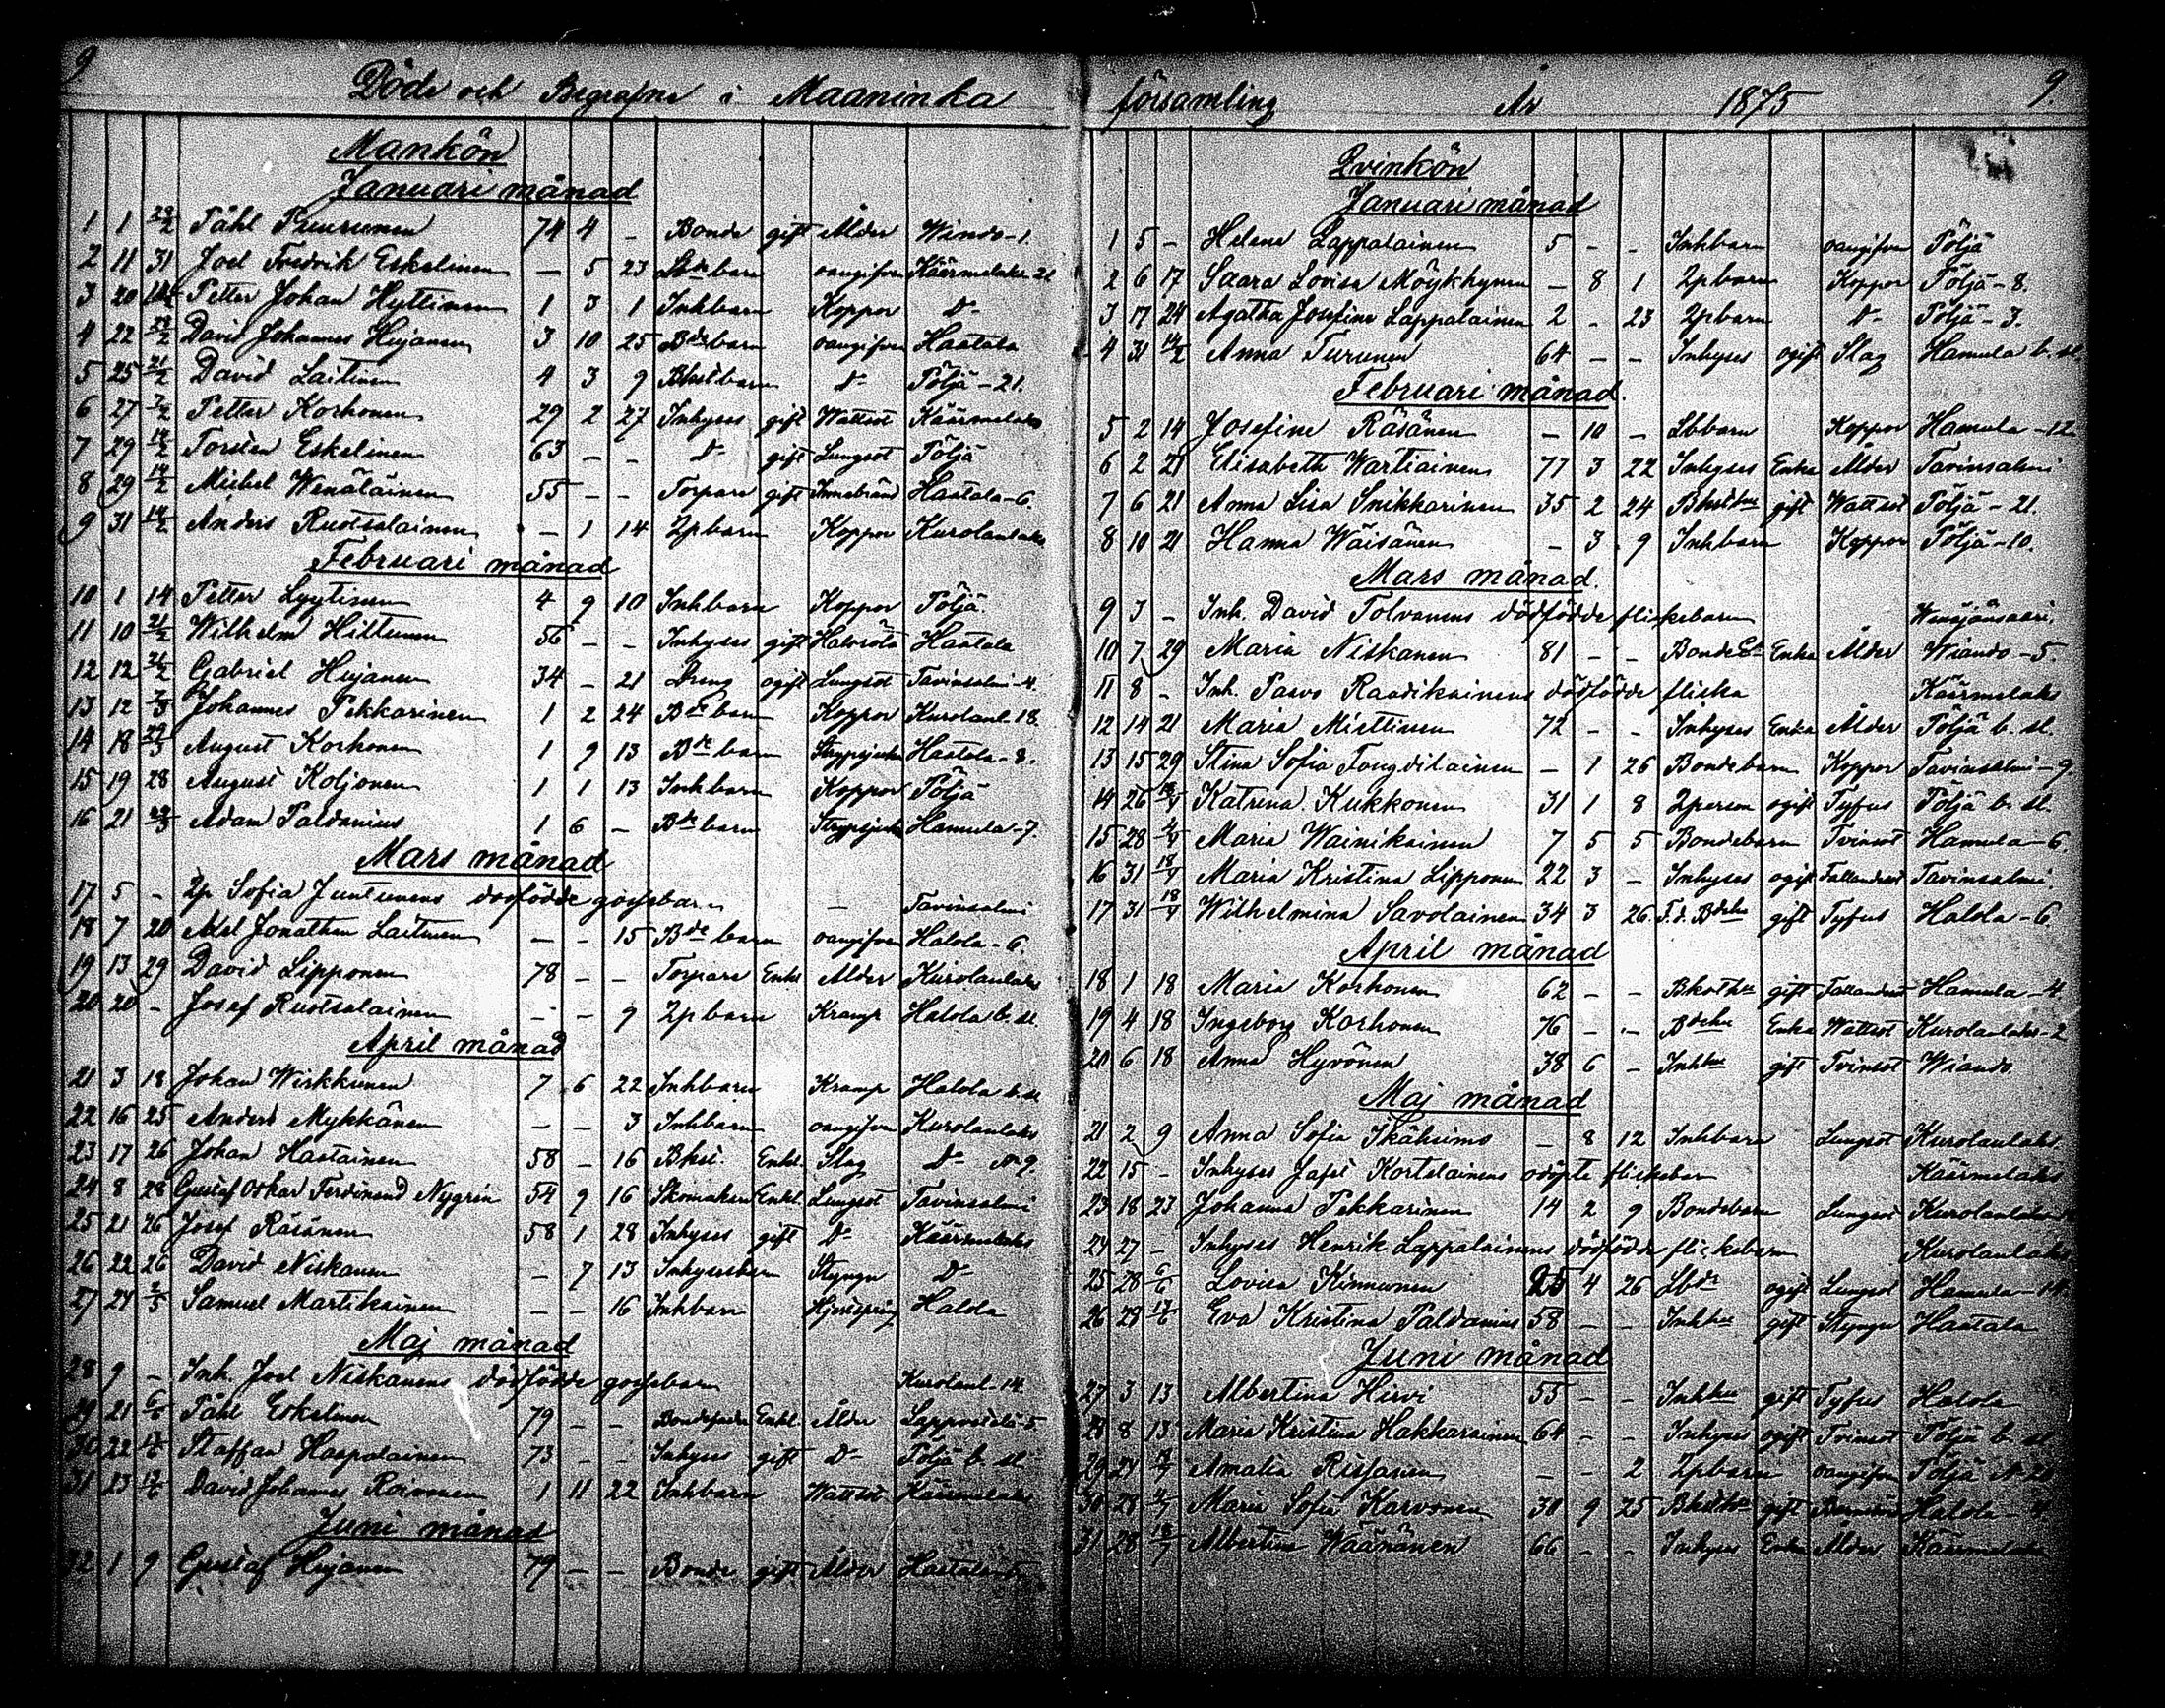 9
Döde och Begrafne i Maaninka
Mankön
Januari månad
1 1 Påhl Puurunen 74 4 - Bonde gift Ålder Wiando-1.
2 11 31 Joel Fredrik Eskelinen - 5 23 barn oangifven Käärmelaks
3 20 Petter Johan Hyttinen 1 3 1 Inhbarn Koppor D-
4 22 David Johannes Hujanen 3 10 25 Bdebarn oangifven Haatala
5 25 21/2 David Laitinen 4 3 9 barn D- Pöljä-21.
6 27 7/2 Petter Korhonen 29 2 27 Inhyses gift Wattsot Käärmelaks
7 29 14/2 Torsten Eskelinen 63 - - D- gift Lungsot Pöljä
8 29 14/2 Michel Wenäläinen 55 - - Torpare gift Haatala-6.
9 31 14/2 Anders Ruotsalainen - 1 14 2pbarn Koppor Kurolanlaks
Februari månad
10 1 14 Petter Lyytinen 4 9 10 Inhbarn Koppor Pöljä.
11 10 21/2 Wilhelm Hiltunen 56 - - Inhyses gift Haatala
12 12 Gabriel Hujanen 34 - 21 Dreng ogift Lungsot Tavinsalmi-4.
13 12 7/3 Johannes Pekkarinen 1 2 24 Bdebarn Koppor Kurolanl-18.
14 18 August Korhonen 1 9 13 Bdebarn Strypsjuka Haatala-8.
15 19 28 August Koljonen 1 1 13 Inhbarn Koppor Pöljä
16 21 Adam Paldanius 1 6 - Bdebarn Strypsjuka Hamula-7.
Mars månad
17 5 - 2p Sofia Juntunens dödfödde gossebarn - Tavinsalmi
18 7 20 Axel Jonathan Laitinen - - 15 Bdebarn oangifven Halola-6.
19 13 29 David Lipponen 78 - - Torpare Enkl Ålder Kurolanlaks
20 20 - Josef Ruotsalainen - - 9 2pbarn Kramp Halola b. sl.
April månad
21 3 18 Johan Wirkkunen 7 6 22 Inhbarn Kramp Halola b. sl
22 16 25 Anders Mykkänen - - 3 Inhbarn oangifven Kurolanlaks
23 17 26 Johan Haatainen 58 - 16 Enkl. Slag D- No 9.
24 8 28 Gustaf Oskar Ferdinand Nygrén 54 9 16 Skomakare Enkl. Lungsot Tavinsalmi
25 21 26 Josef Räsänen 58 1 28 Inhyses gift D- Käärmelaks
26 22 26 David Niskanen - 7 13 Inhysesbarn Styngn D-
27 24 2/5 Samuel Martikainen - - 16 Inhbarn Halola
Maj månad
28 9 - Inh. Joel Niskanens dödfödde gossebarn Kurolanl-14
29 21 6/6 Påhl Eskelinen 79 - - Enkl. Ålder
30 22 Staffan Haapalainen 73 - - Inhyses gift D- Pöljä b. sl
31 23 David Johannes Roivanen 1 11 22 Inhbarn Wattsot Käärmelaks
Juni månad
32 1 9 Gustaf Hujanen 79 - - Bonde gift Ålder Haatala
församling År 1875 9.
Qvinkön
Januari månad
1 5 - Helena Lappalainen 5 - - Inhbarn oangifven Pöljä
2 6 17 Saara Lovisa Möykkynen - 8 1 2pbarn Koppor Pöljä-8.
3 17 24 Agatha Josefina Lappalainen 2 - 23 2pbarn D- Pöljä-3.
4 31 14/2 Anna Turunen 64 - - Inhyses ogift Slag Hamula b. sl.
Februari månad.
5 2 14 Josefina Räsänen - 10 - Lbbarn Koppor Hamula-12.
6 2 21 Elisabeth Wartiainen 77 3 22 Inhyses Enka Ålder Tavinsalmi
7 6 21 Anna Lisa Snikkarinen 35 2 24 gift Wattsot Pöljä-21.
8 10 21 Hanna Wäisänen - 3 9 Inhbarn Koppor Pöljä-10.
Mars månad.
9 3 - Inh. David Tolvanens dödfödde flickebarn
10 7 29 Maria Niskanen 81 - - Enka Ålder Wiando-5.
11 8 - Inh. Paavo Raadikainens dödfödde flicka Käärmelaks
12 14 21 Maria Miettinen 72 - - Inhyses Enka Ålder Pöljä b. sl.
13 15 29 Stina Sofia - 1 26 Bondebarn Koppor Tavinsalmi-9.
14 26 Katrina Kukkonen 31 1 8 2person ogift Tyfus Pöljä b. sl.
15 28 4/4 Maria Wainikainen 7 5 5 Bondebarn Tvinsot Hamula-6.
16 31 18/4 Maria Kristina Lipponen 22 3 - Inhyses ogift Fallandsot Tavinsalmi.
17 31 18/4 Wilhelmina Savolainen 34 3 26 gift Tyfus Halola-6.
April månad
18 1 18 Maria Korhonen 62 - - gift Fallandsot Hamula-4.
19 4 18 Ingeborg Korhonen 76 - - Enka Wattsot Kurolanlaks-2
20 6 18 Anna Hyvönen 38 6 - Inhhu gift Tvinsot Wiando
Maj månad
21 2 9 Anna Sofia Ikäheimo - 8 12 Inhbarn Lungsot Kurolanlaks.
22 15 - Inhyses Kortelainens odöpte flickebarn Käärmelaks
23 18 23 Johanna Pekkarinen 14 2 9 Bondebarn Lungsot Kurolanlaks
24 27 - Inhyses Henrik Lappalainens dödfödde flickebarn Kurolanlaks
25 28 6/6 Lovisa Kinnunen 25 4 26 ogift Lungsot Hamula-14.
26 28 Eva Kristina Paldanius 58 - - Inhhu gift Styngn Haatala
Juni månad
27 3 13 Albertina Hirvi 55 - - Inhhu gift Tyfus Halola
28 8 13 Maria Kristina Hakkarainen 64 - - Inhyses ogift Tvinsot Pöljä b. sl
29 24 Amalia Rissanen - - 2 2pbarn oangifven Pöljä
30 28 Maria Sofia Karvonen 30 9 25 gift Halola-4
31 28 18/7 Albertina Wäänänen 66 - - Inhyses Enka Ålder Käärmelaks